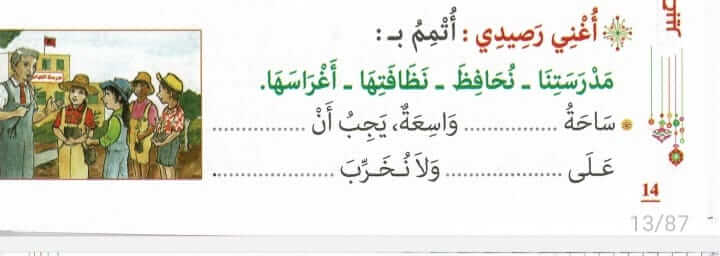 عبير
أُغْنِي رَصِيدِي : أُتْمِمُ بـ :
مَدْرَسَتِنَا ـ نُحَافِظَ ـ نَظَافَتِهَا ـ أَغْرَاسَهَا.
سَاحَةُ ................ وَاسِعَةٌ، يَجِبُ أَنْ .....................
عَـلَى ..................... وَلاَ نُـخَـرِّبَ .....................
14
13/87